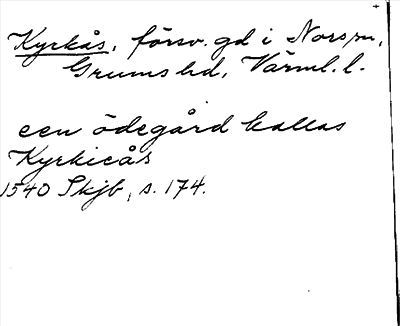 Kyrkås, försv. gd i Nors sn,
Grums hd, Värml. l.
een ödegård kallas
Kyrkieås
1540 Skjb, s. 174.